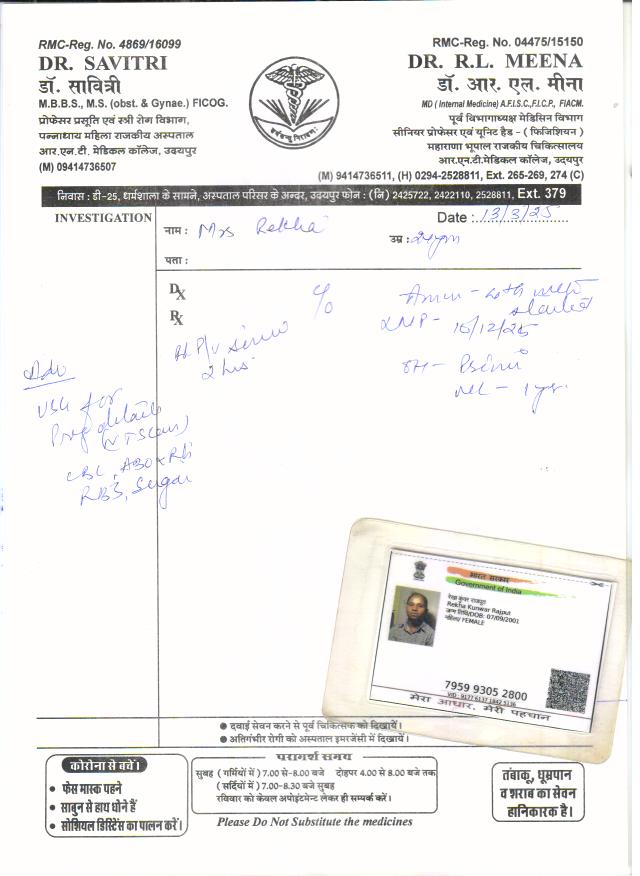 RMC-Reg. No. 4869/16099
DR. SAVITRI
डॉ. सावित्री
M.B.B.S., M.S. (obst. & Gynae.) FICOG.
प्रोफेसर प्रसूति एवं स्त्री रोग विभाग,
पन्नाधाय महिला राजकीय अस्पताल
आर.एन.टी. मेडिकल कॉलेज, उदयपुर
(M) 09414736507
RMC-Reg. No. 04475/15150
DR. R.L. MEENA
डॉ. आर. एल. मीना
MD ( Internal Medicine) A.F.I.S.C.,F.I.C.P., FIACM.
पूर्व विभागाध्यक्ष मेडिसिन विभाग
सीनियर प्रोफेसर एवं यूनिट हैड - ( फिजिशियन )
महाराणा भूपाल राजकीय चिकित्सालय
आर.एन.टी.मेडिकल कॉलेज, उदयपुर
(M) 9414736511, (H) 0294-2528811, Ext. 265-269, 274 (C)
निवास : डी-25, धर्मशाला के सामने, अस्पताल परिसर के अन्दर, उदयपुर फोन : (नि) 2425722, 2422110, 2528811, Ext. 379
INVESTIGATION
नाम : Mrs Rekha
Date : 13/3/25
उम्र :
पता :
DX
RX
C/o
Amen - 4th
started
LMP- 15/12/25
H/ P/V
2 hrs
OH -
ML - 1 yr.
Adv
USG for
Preg details
(NT Scan)
CBC, ABO x Rh
RBS, Sugar
भारत सरकार
Government of India
रेखा कुंवर राजपूत
Rekha Kunwar Rajput
जन्म तिथि/DOB: 07/09/2001
महिला/ FEMALE
7959 9305 2800
VID : 9177 6137 1842 5136
मेरा आधार, मेरी पहचान
● दवाई सेवन करने से पूर्व चिकित्सक को दिखायें।
● अतिगंभीर रोगी को अस्पताल इमरजेंसी में दिखायें।
कोरोना से बचें।
• फेस मास्क पहने
• साबुन से हाथ धोने हैं
• सोशियल डिस्टेंस का पालन करें।
परामर्श समय
सुबह ( गर्मियों में ) 7.00 से-8.00 बजे दोहपर 4.00 से 8.00 बजे तक
(सर्दियों में ) 7.00-8.30 बजे सुबह
रविवार को केवल अपोइंटमेण्ट लेकर ही सम्पर्क करें।
Please Do Not Substitute the medicines
तंबाकू, धूम्रपान
व शराब का सेवन
हानिकारक है।